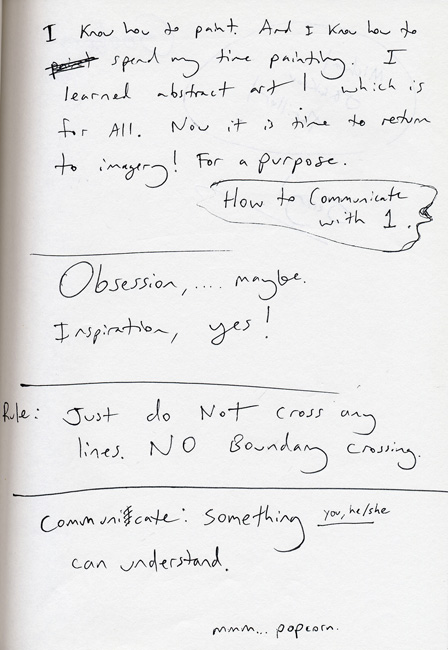 I know how to paint. And I know how to
paint spend my time painting. I
learned abstract art! which is
for All. Now it is time to return
to imagery! For a purpose.
How to Communicate
with 1.
Obsession, .... maybe.
Inspiration, yes!
Rule: Just do Not cross any
lines. NO Boundary crossing.
Communicate: Something you, he/she
can understand.
mmm... popcorn.